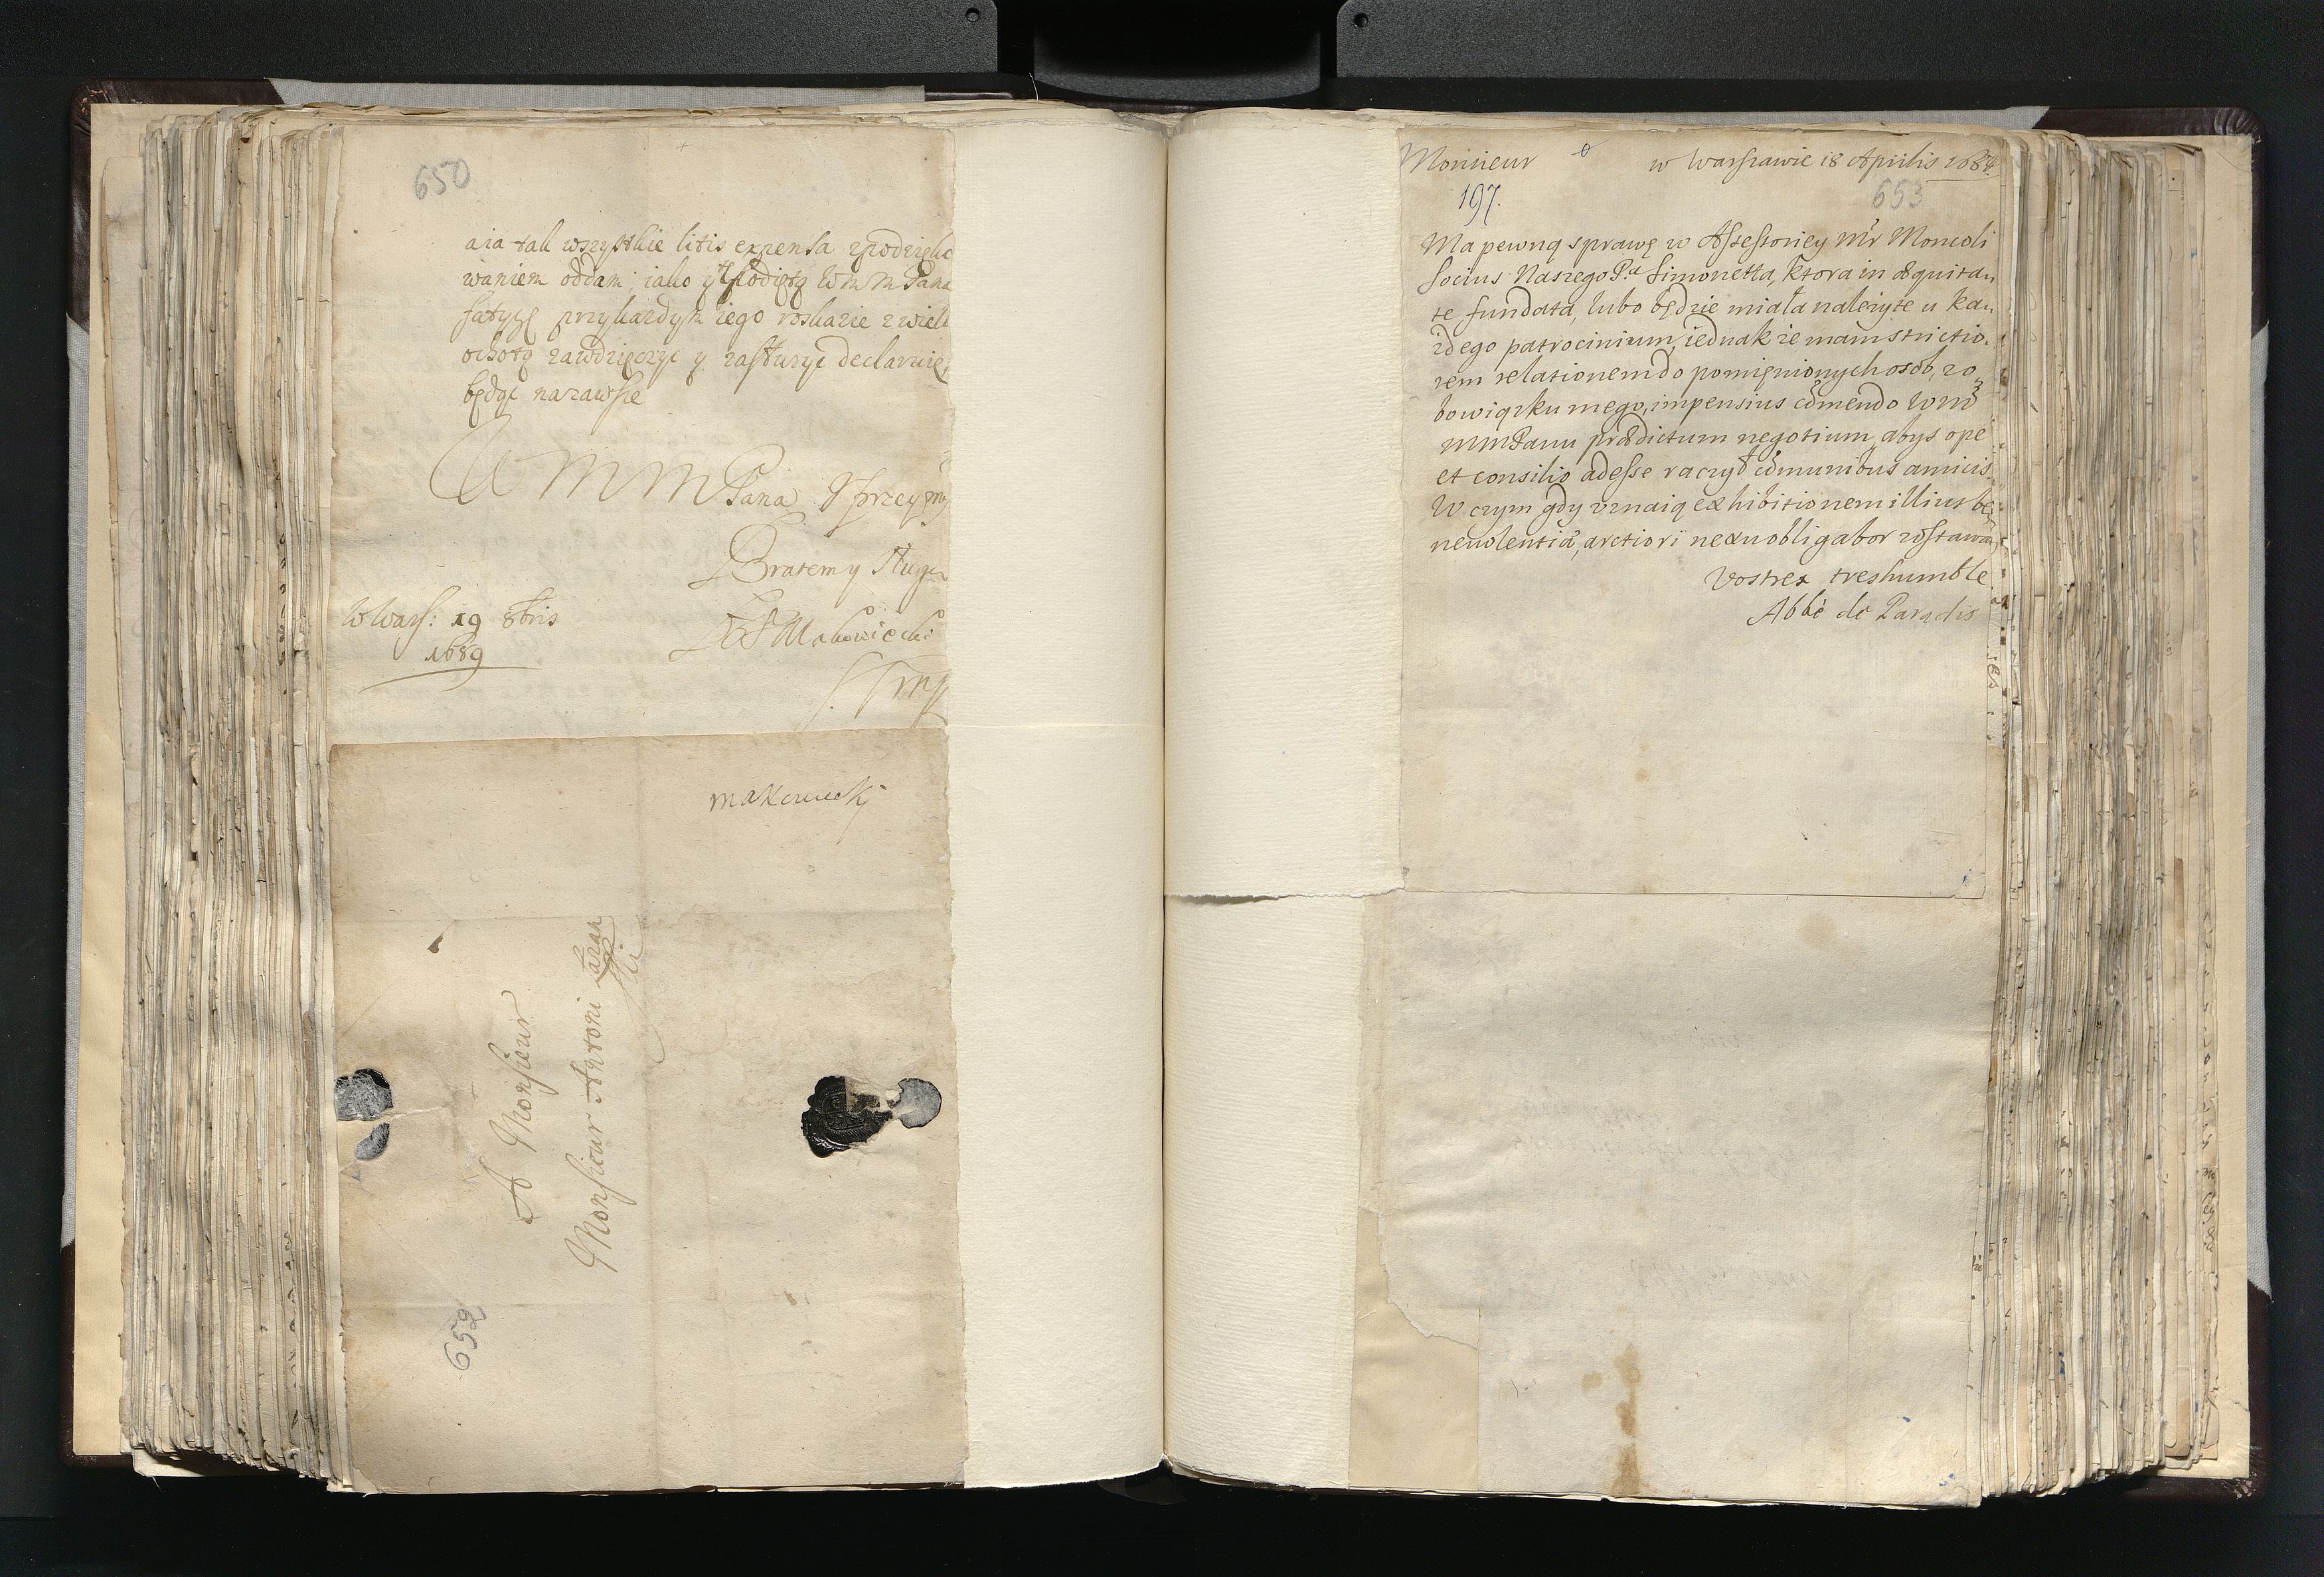 650
aia tak wszystkie litis expensa zpodzięko
waniem oddam; iako y tę podiętą WMM Pana
fatygę przy kazdym iego roskazie z wiel
ochotą zawdzięczyć y zasłuzyć declaruię,
będąc nazawsze
W M M Pana Uprzeymy
Bratem y Sługą
Makowiecki
W Wars: 19 8bris
1689
makowieckj
A Monsieur
Monsieur Antoni
652
Monsieur
w Warszawie 18 Aprilis
197.
653
Ma pewną sprawę w Assessoriey Mr Momoli
socius Naszego P. Simonetta, ktora in æquita-
te fundata, lubo będzie miała należyte u ka-
zdego patrocinium, iednak ze mam strictio-
rem relationem do pomięnionych osób, z o-
bowiązku mego, impensius cōmendo WM
MM Panu prædictum negotium, abyś ope
et consilio adesse raczył cōmunibus amicis.
W czym gdy uznaią exhibitionem illius be-
nevolentiæ, arctiori nexu obligabor zostawać
Vostre tres humble
Abbé de Paradis